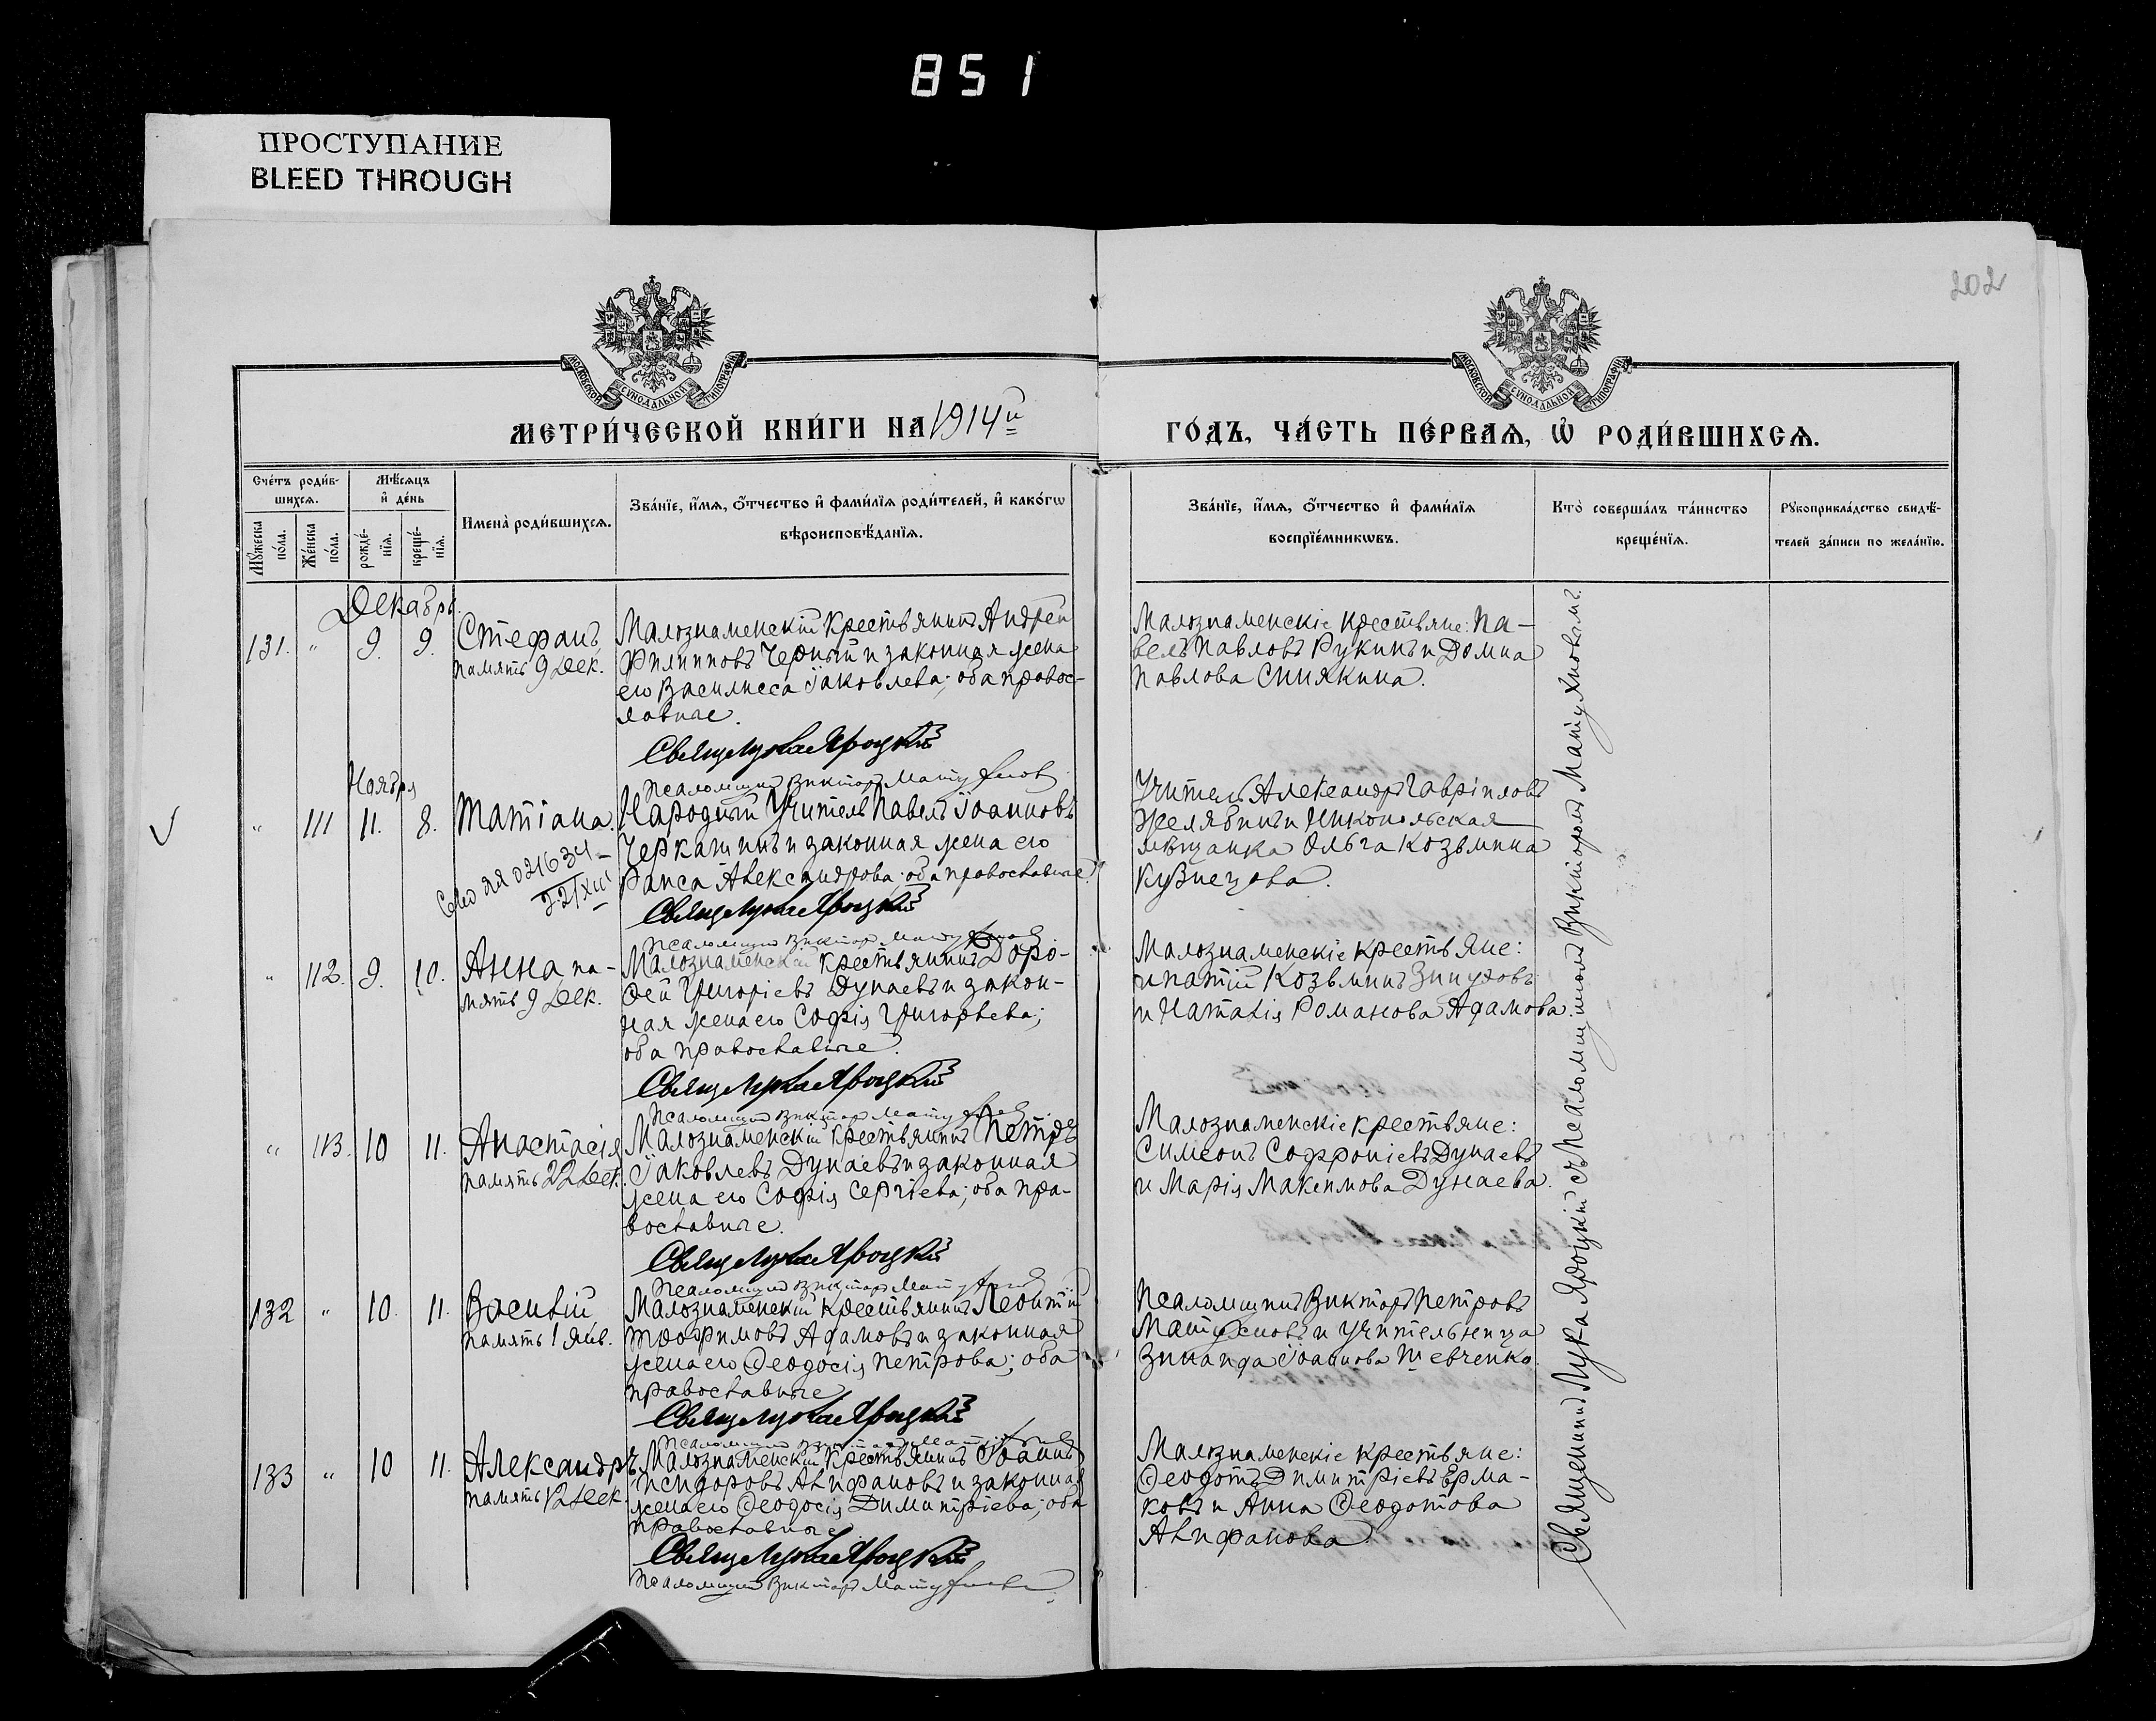 851
ПРОСТУПАНИЕ
BLEED THROUGH
202
МОСКОВСКОЙ СУНОДАЛЬНОЙ ТИПОГРАФІИ
МОСКОВСКОЙ СУНОДАЛЬНОЙ ТИПОГРАФІИ
МЕТРИ́ЧЕСКОЙ КНИ́ГИ НА 1914й
ГО́ДЪ, ЧА́СТЬ ПЕ́РВАѦ, Ѡ҆ РОДИ́ВШИХСѦ.
Сче́тъ роди́в-
шихсѧ.
Мѣ́сѧцъ
и҆ де́нь
Мꙋ́жеска
по́ла.
Же́нска
по́ла.
рожде́-
нїѧ.
креще́-
нїѧ.
Имена̀ роди́вшихсѧ.
Зва́нїе, и҆́мѧ, ѻ҆́тчество и҆ фами́лїѧ роди́телей, и҆ како́гѡ
вѣроисповѣ́данїѧ.
Зва́нїе, и҆́мѧ, ѻ҆́тчество и҆ фами́лїѧ
воспрїе́мникѡвъ.
Кто̀ соверша́лъ та́инство
креще́нїѧ.
Рꙋкоприкла́дство свидѣ́-
телей за́писи по жела́нїю.
Декабрь.
131. " 9. 9. Стефанъ
память 9 Дек.
Малознаменскій крестьянинъ Андрей
Филипповъ Черный и законная жена
его Василисса Іаковлева; оба правос-
лавные.
Свящ Лука Яроцкій
Псаломщикъ Викторъ Матухновъ
Малознаменскіе крестьяне: Па-
велъ Павловъ Рукинъ и Домна
Павлова Синякина.
Ноября
" 111 11. 8. Татіана.
Народный Учитель Павелъ Іоанновъ
Черкашинъ и законная жена его
Раиса Александрова; оба православные.
Свящ Лука Яроцкій
Псаломщикъ Викторъ Матухновъ
Учитель Александръ Гавріиловъ
Желябинъ и Никопольская
мѣщанка Ольга Козьмина
Кузнецова.
" 112. 9. 10. Анна па-
мять 9 Дек.
Малознаменскій крестьянинъ Доро-
фей Григоріевъ Дунаевъ и закон-
ная жена его Софія Григорьева;
оба православные.
Свящ Лука Яроцкій
Псаломщикъ Викторъ Матухновъ
Малознаменскіе крестьяне:
Ипатій Козьминъ
и Наталія Романова Адамова.
" 113. 10 11. Анастасія
память 22 Дек.
Малознаменскій крестьянинъ Петръ
Іаковлевъ Дунаевъ и законная
жена его Софія Сергіева; оба пра-
вославные.
Свящ Лука Яроцкій
Псаломщикъ Викторъ Матухновъ
Малознаменскіе крестьяне:
Симеонъ Софроніевъ Дунаевъ
и Марія Максимова Дунаева.
132 " 10. 11. Василій
память 1 Янв.
Малознаменскій крестьянинъ Леонтій
Трофимовъ Адамовъ и законная
жена его Ѳеодосія Петрова; оба
православные
Свящ Лука Яроцкій
Псаломщикъ Викторъ Матухновъ
Псаломщикъ Викторъ Петровъ
Матухновъ и учительница
Зинаида Іоаннова Шевченко.
133 " 10 11. Александръ
память 12 Дек.
Малознаменскій крестьянинъ Іоаннъ
Исидоровъ Алифановъ и законная
жена его Ѳеодосія Димитріева; оба
православные
Свящ Лука Яроцкій
Псаломщикъ Викторъ Матухновъ.
Малознаменскіе крестьяне:
Ѳеодотъ Димитріевъ Ерма-
ковъ и Анна Ѳеодотова
Алифанова
Священникъ Лука Яроцкій съ Псаломщикомъ Викторомъ Матухновымъ.